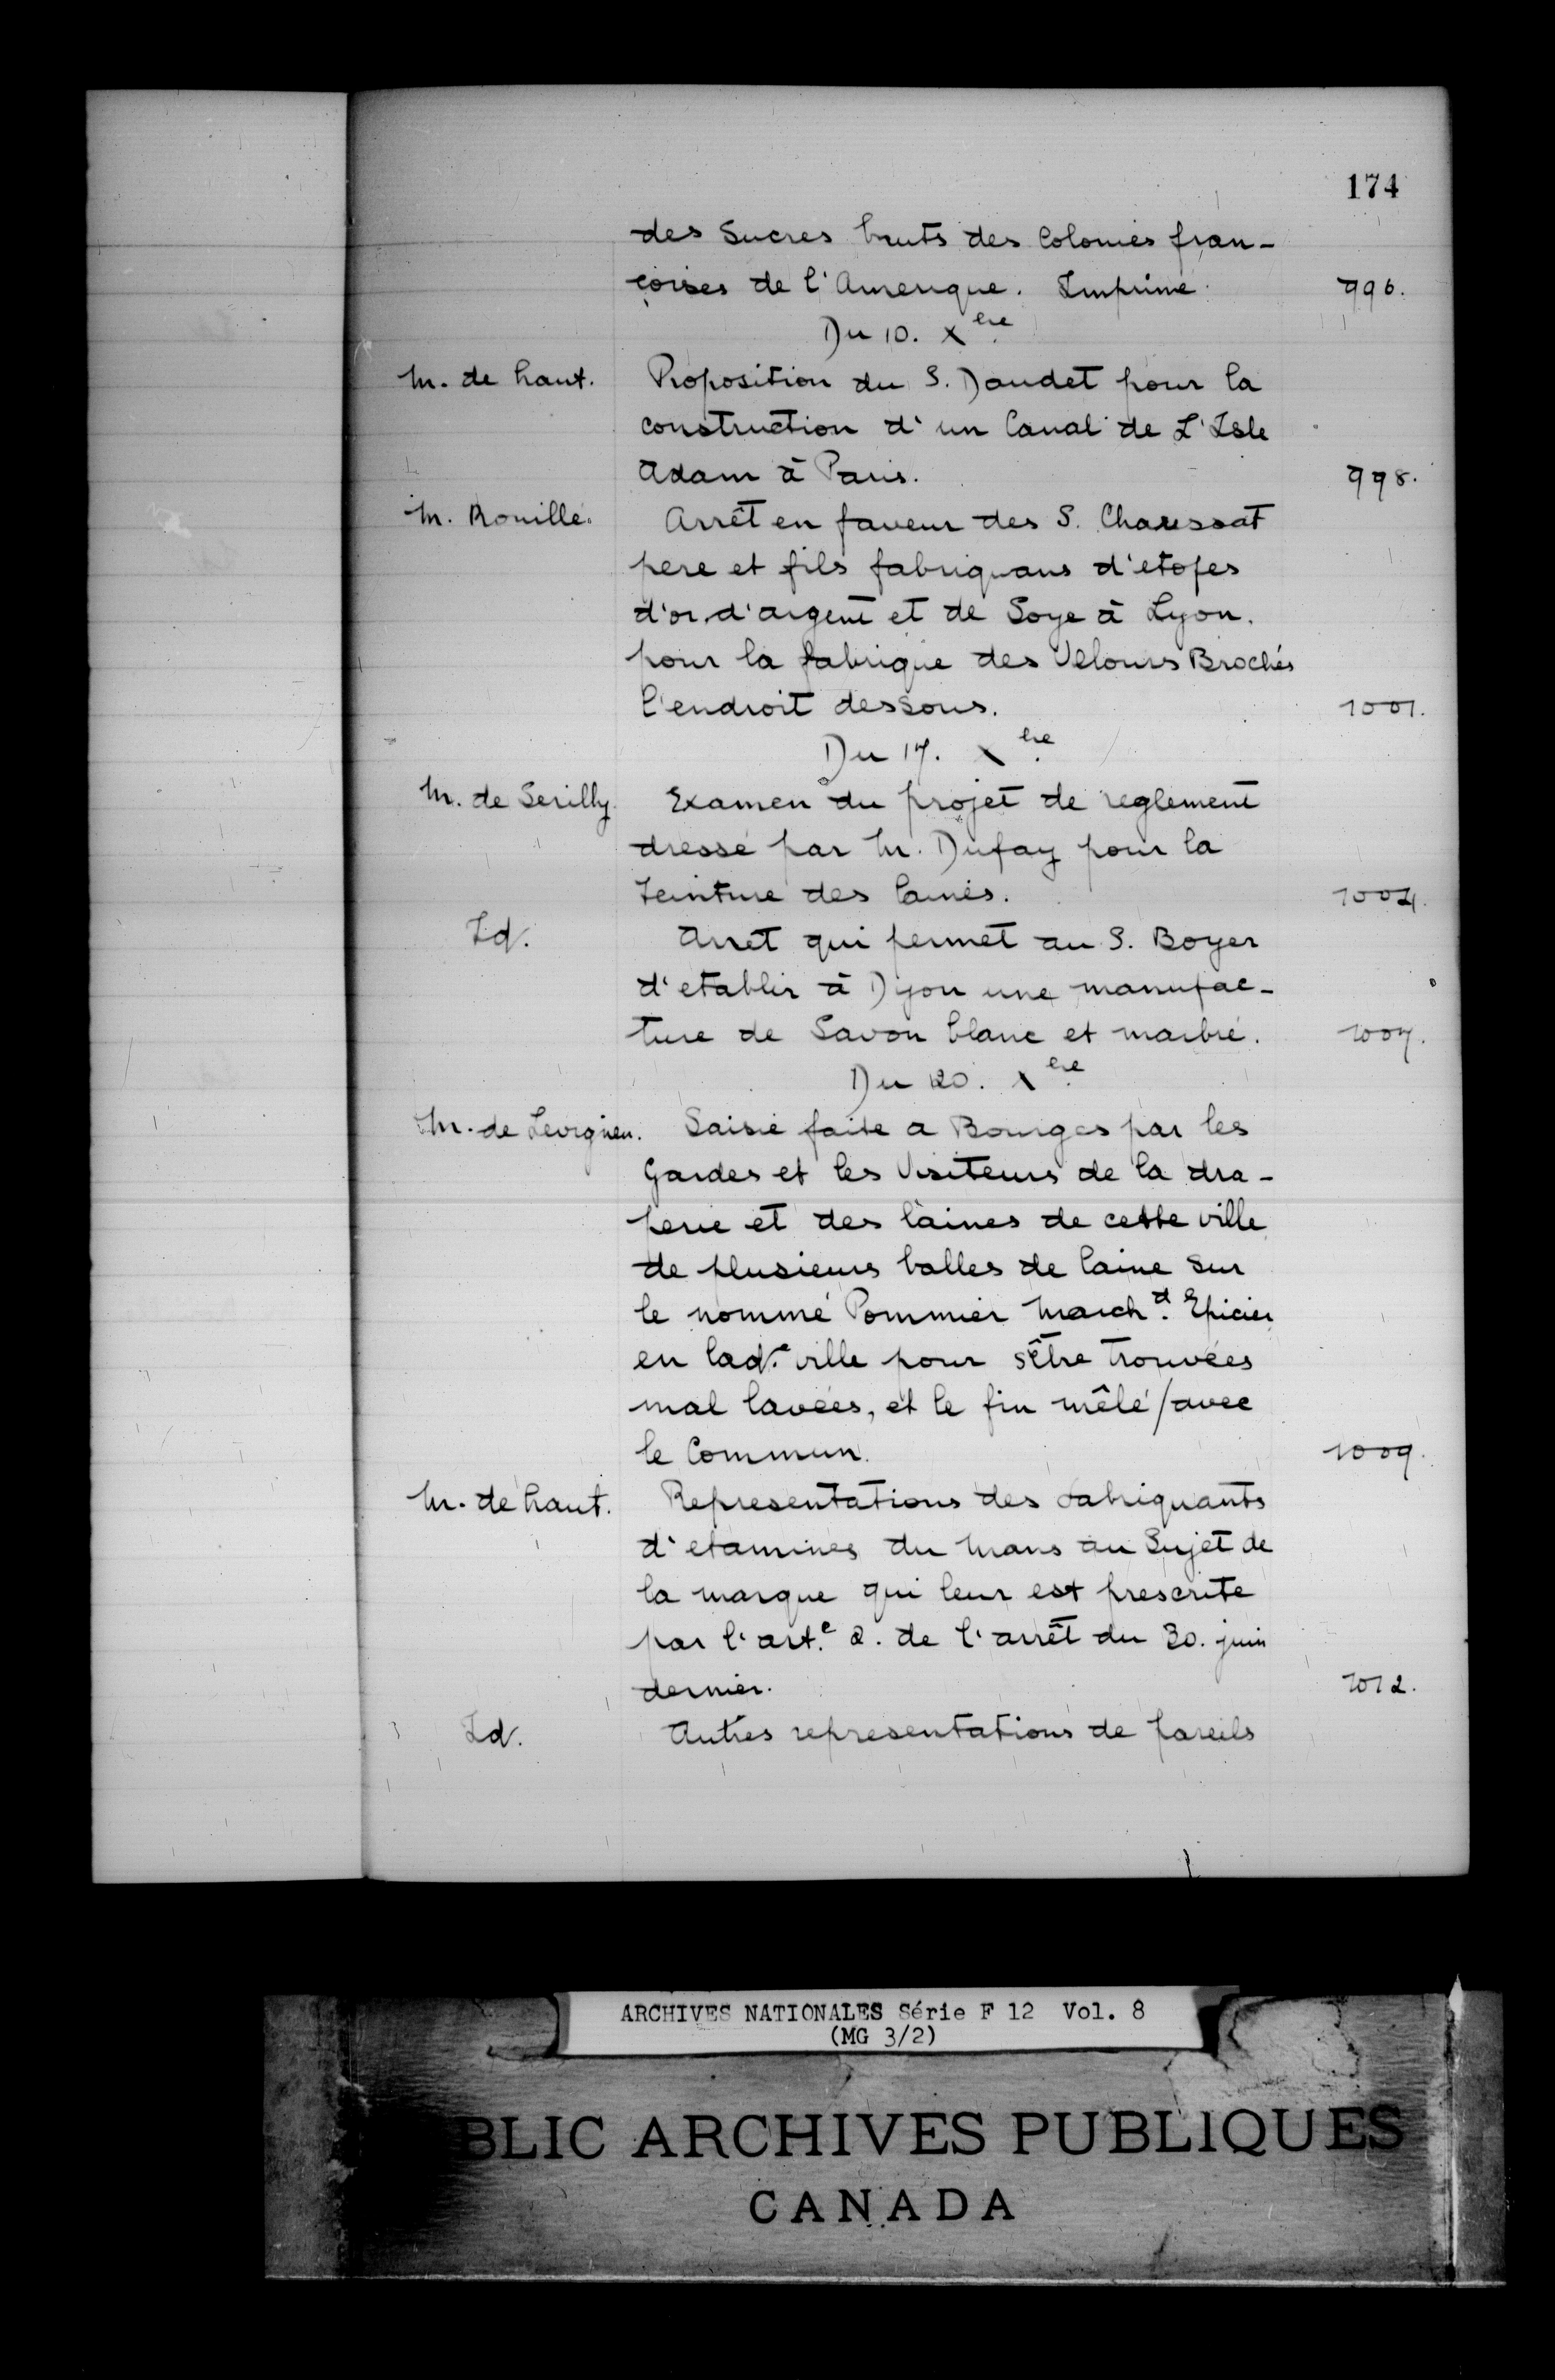 174
des Sucres bruts des Colonies fran-
çoises de l'Amerique. Imprimé. 996.
Du 10. Xbre
M. de haut. Proposition du S. Daudet pour la
construction d'un Canal de L'Isle
Adam à Paris. 998.
M. Rouillé. Arrêt en faveur des S. Charessat
pere et fils fabriquans d'etofes
d'or, d'argent et de Soye à Lyon.
pour la fabrique des Velours Brochés
l'endroit dessous. 1001.
Du 17. Xbre
M. de Serilly. Examen du projet de reglement
dressé par M. Dufay pour la
teinture des laines. 1004.
Id. Arret qui permet au S. Boyer
d'etablir à Dijon une manufac-
ture de Savon blanc et marbré. 1007.
Du 20. Xbre
M. de Levignen. Saisie faite a Bourges par les
Gardes et les Visiteurs de la dra-
perie et des laines de cette ville
de plusieurs balles de laine sur
le nommé Pommier March.d Epicier
en lad.e ville pour s'être trouvées
mal lavées, et le fin mêlé/avec
le Commun. 1009.
M. de haut. Representations des fabriquants
d'etamines du Mans au Sujet de
la marque qui leur est prescrite
par l'art.e 2. de l'arrêt du 30. juin
dernier. 1012.
Id. Autres representations de pareils
ARCHIVES NATIONALES Série F 12 Vol. 8
(MG 3/2)
BLIC ARCHIVES PUBLIQUES
CANADA